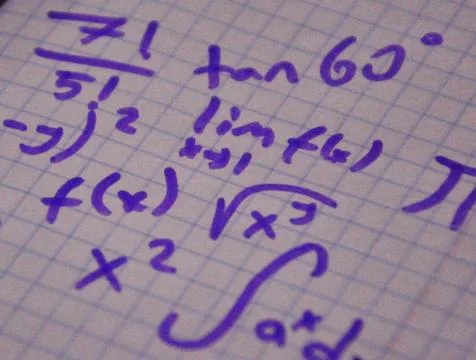 7!/5! tan 60°
-y)² lim x→1 f(x) π
f(x) √x³
x² ∫a^x d